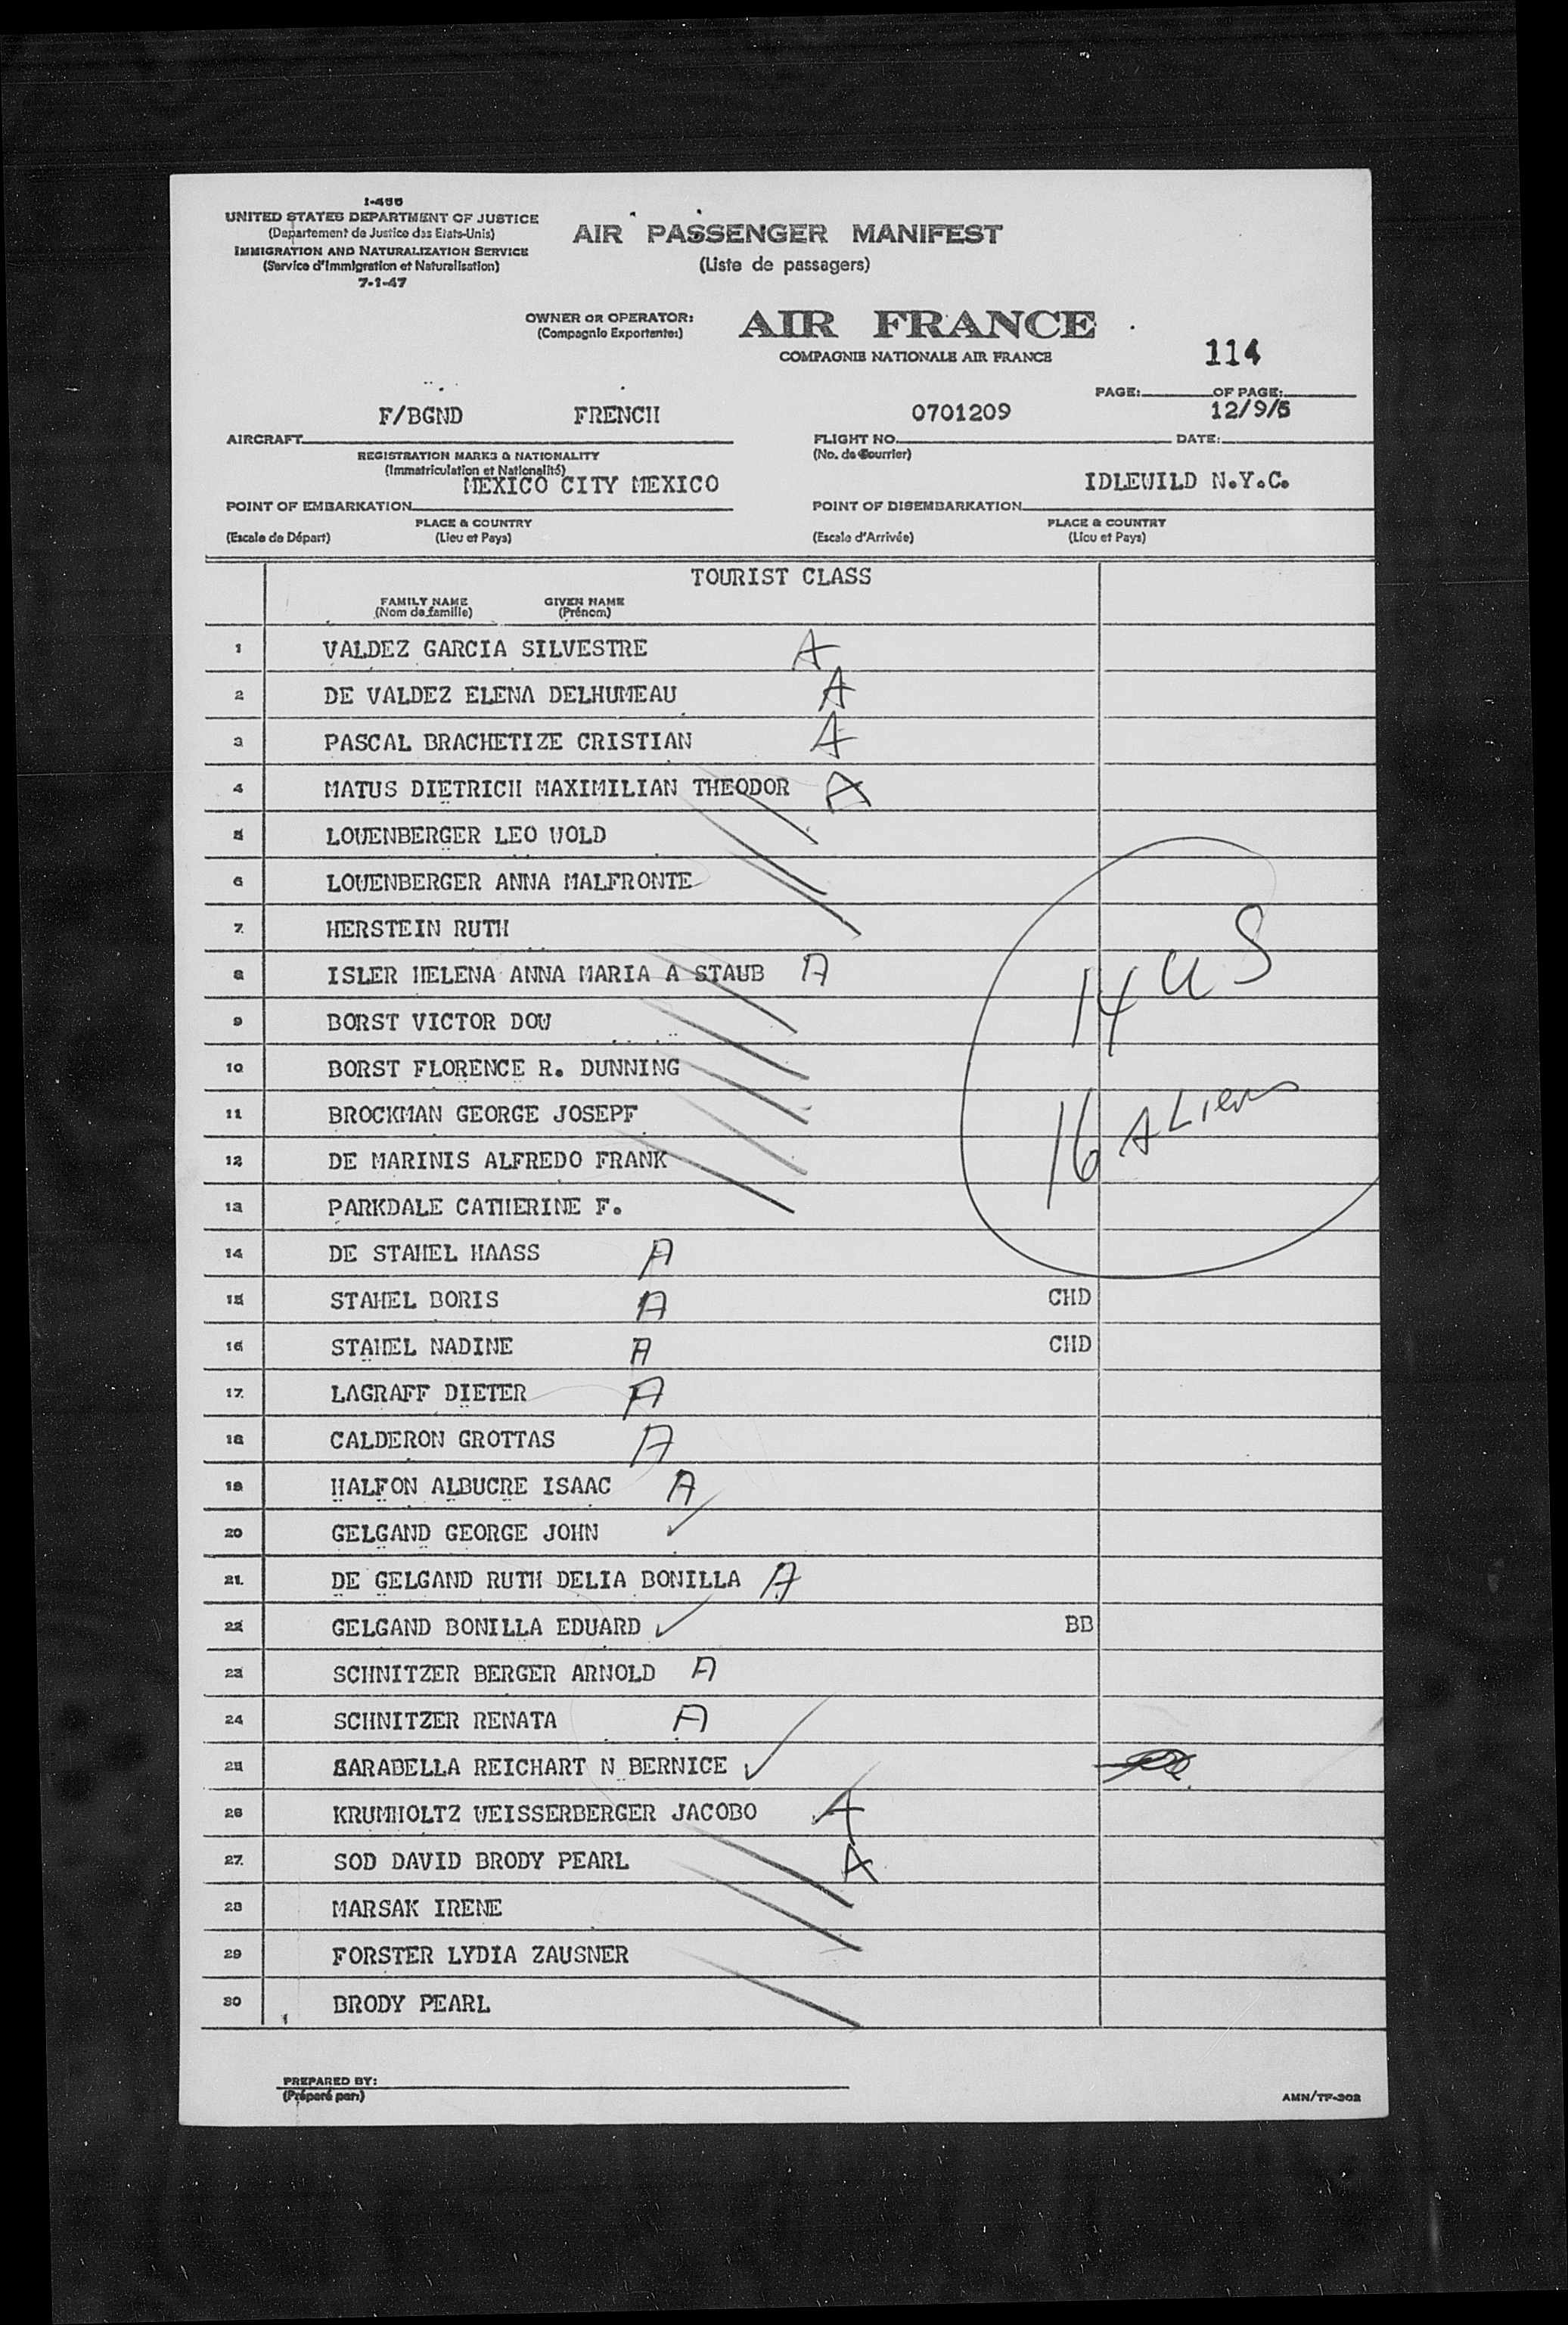 I-466
UNITED STATES DEPARTMENT OF JUSTICE
(Departement de Justice des Etats-Unis)
IMMIGRATION AND NATURALIZATION SERVICE
(Service d'Immigration et Naturalisation)
7-1-47
AIR PASSENGER MANIFEST
(Liste de passagers)
OWNER OR OPERATOR:
(Compagnie Exportante:)
AIR FRANCE
COMPAGNIE NATIONALE AIR FRANCE
114
PAGE: OF PAGE:
F/BGND FRENCH 0701209 12/9/5
AIRCRAFT FLIGHT NO. DATE:
REGISTRATION MARKS & NATIONALITY (No. de Courrier)
(Immatriculation et Nationalité)
MEXICO CITY MEXICO IDLEWILD N.Y.C.
POINT OF EMBARKATION POINT OF DISEMBARKATION
PLACE & COUNTRY PLACE & COUNTRY
(Escale de Départ) (Lieu et Pays) (Escale d'Arrivée) (Lieu et Pays)
TOURIST CLASS
FAMILY NAME GIVEN NAME
(Nom de famille) (Prénom)
1 VALDEZ GARCIA SILVESTRE A
2 DE VALDEZ ELENA DELHUMEAU A
3 PASCAL BRACHETIZE CRISTIAN A
4 MATUS DIETRICH MAXIMILIAN THEODOR A
5 LOWENBERGER LEO WOLD
6 LOWENBERGER ANNA MALFRONTE
7 HERSTEIN RUTH
8 ISLER HELENA ANNA MARIA A STAUB A
14 US
9 BORST VICTOR DOW
10 BORST FLORENCE R. DUNNING
11 BROCKMAN GEORGE JOSEPF
16 ALiens
12 DE MARINIS ALFREDO FRANK
13 PARKDALE CATHERINE F.
14 DE STAHEL HAASS A
15 STAHEL BORIS A CHD
16 STAHEL NADINE A CHD
17 LAGRAFF DIETER A
18 CALDERON GROTTAS A
19 HALFON ALBUCRE ISAAC A
20 GELGAND GEORGE JOHN ✓
21 DE GELGAND RUTH DELIA BONILLA A
22 GELGAND BONILLA EDUARD ✓ BB
23 SCHNITZER BERGER ARNOLD A
24 SCHNITZER RENATA A
25 SARABELLA REICHART N BERNICE ✓
26 KRUMHOLTZ WEISSERBERGER JACOBO A
27 SOD DAVID BRODY PEARL A
28 MARSAK IRENE
29 FORSTER LYDIA ZAUSNER
30 BRODY PEARL
PREPARED BY:
(Préparé par:)
AMN/TF-302